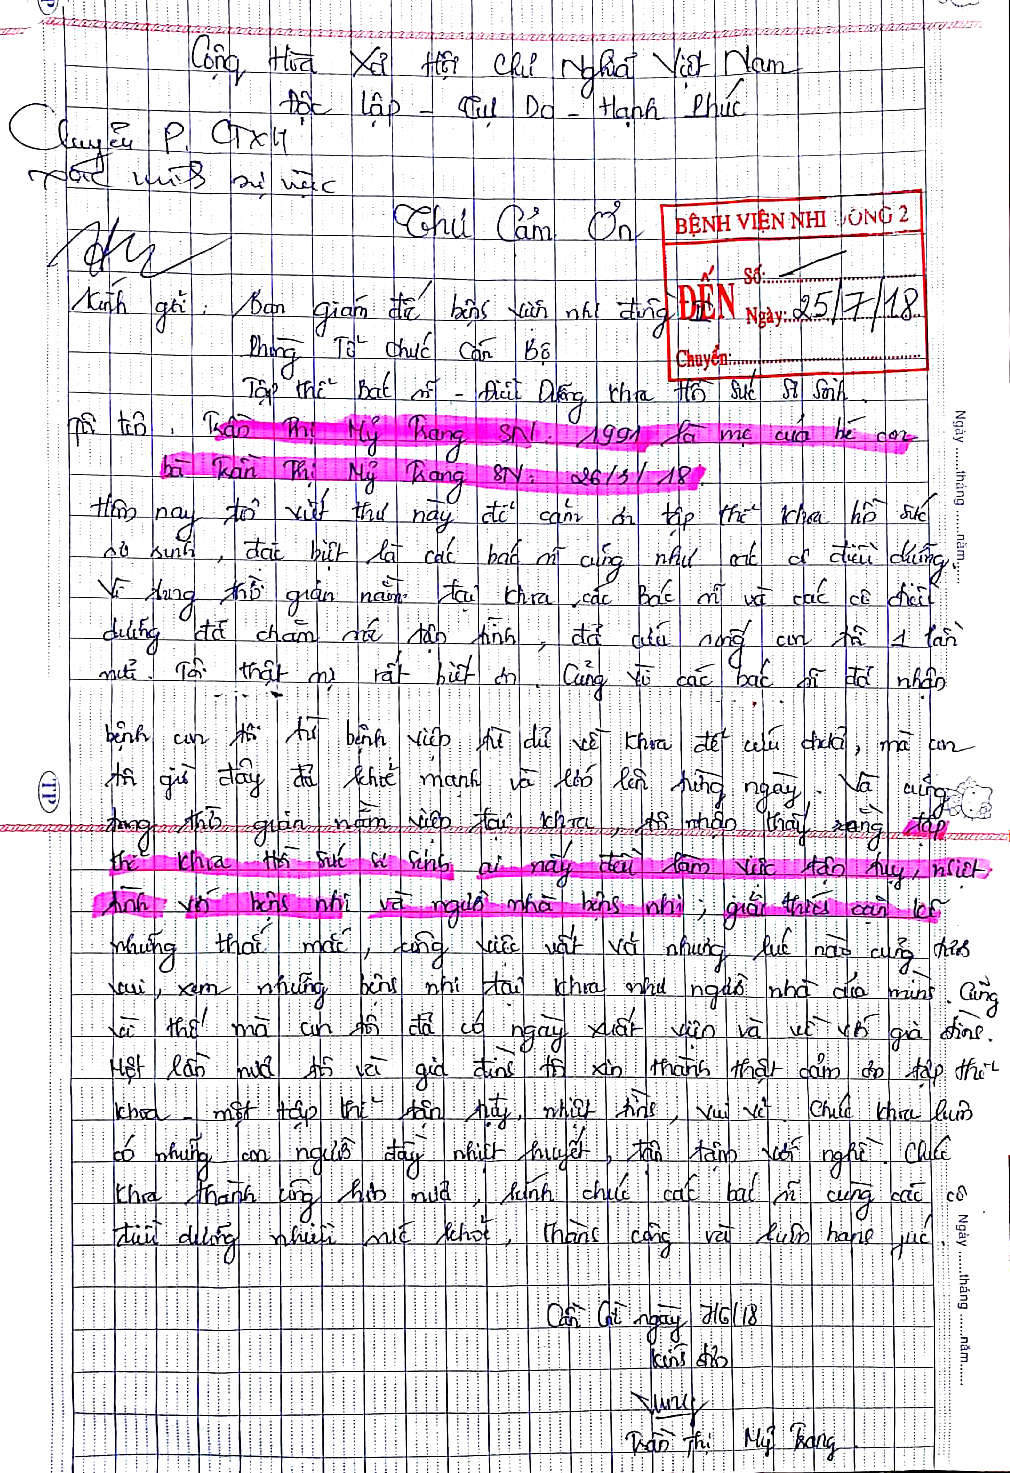 Cộng Hòa Xã Hội Chủ Nghĩa Việt Nam
Độc lập - Tự Do - Hạnh Phúc
Chuyển P. CTXH
xác minh sự việc
Thư Cảm Ơn
BỆNH VIỆN NHI ĐỒNG 2
ĐẾN
Số:
Ngày: 25/7/18
Chuyển:
Kính gởi: Ban giám đốc bệnh viện nhi đồng
Phòng Tổ chức Cán Bộ
Tập thể Bác sĩ - Điều Dưỡng khoa Hồ Sức Sơ Sinh.
Tôi tên: Trần Thị Mỹ Trang SN: 1991 là mẹ của bé con
bà Trần Thị Mỹ Trang SN: 26/3/18.
Hôm nay tôi viết thư này để cảm ơn tập thể khoa hồ sức
sơ sinh, đặc biệt là các bác sĩ cũng như các cô điều dưỡng.
Vì trong thời gian nằm tại khoa các Bác sĩ và các cô điều
dưỡng đã chăm sóc tận tình, đã cứu sống con tôi 1 lần
nữa. Tôi thật sự rất biết ơn. Cũng vì các bác sĩ đã nhận
bệnh con tôi từ bệnh viện từ dũ về khoa để cứu chữa, mà con
tôi giờ đây đã khoẻ mạnh và lớn lên từng ngày. Và cũng
trong thời gian nằm viện tại khoa, tôi nhận thấy rằng tập
thể khoa Hồ sức sơ sinh ai nấy đều làm việc tận tụy, nhiệt
tình với bệnh nhi và người nhà bệnh nhi; giải thích cặn kẽ
những thắc mắc, công việc vất vả nhưng lúc nào cũng
vui, xem những bệnh nhi tại khoa như người nhà của mình. Cũng
vì thế mà con tôi đã có ngày xuất viện và về với gia đình.
Một lần nữa tôi và gia đình tôi xin thành thật cảm ơn tập thể
khoa - một tập thể tận tụy, nhiệt tình, vui vẻ. Chúc khoa luôn
có những con người đầy nhiệt huyết, tận tâm với nghề. Chúc
khoa thành công hơn nữa, kính chúc các bác sĩ cùng các cô
điều dưỡng nhiều sức khoẻ, thành công và luôn hạnh phúc.
ngày 7/6/18
Kính đơn
Trần Thị Mỹ Trang
TP
Ngày ......tháng ......năm......
Ngày ......tháng ......năm......